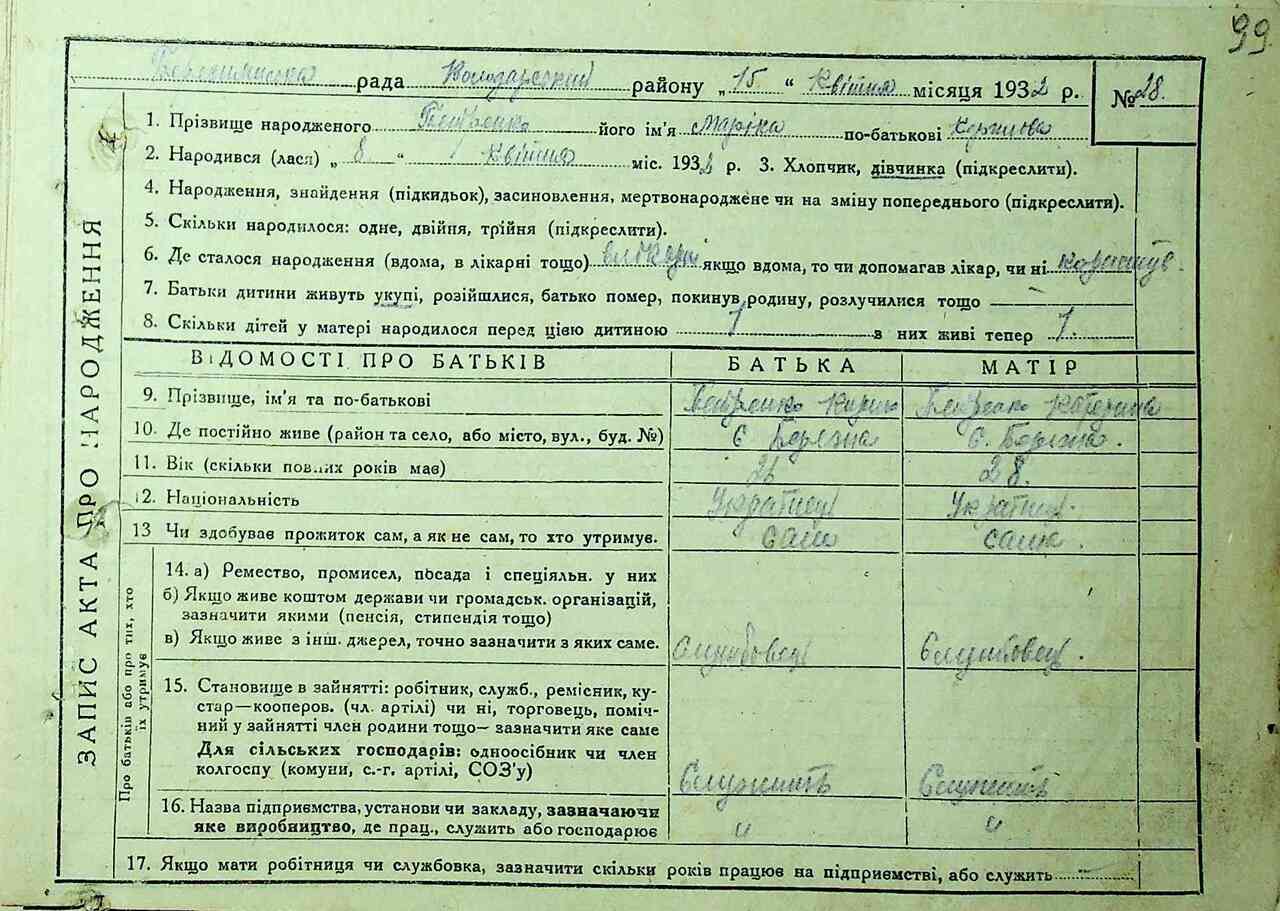 99
рада Володарский району „ 15 “ Квітня місяця 1932 р. № 28.
1. Прізвище народженого Петренко його ім'я Маріка по-батькові
2. Народився (лася) „ 8 “ Квітня міс. 1932 р. 3. Хлопчик, дівчинка (підкреслити).
4. Народження, знайдення (підкидьок), засиновлення, мертвонароджене чи на зміну попереднього (підкреслити).
5. Скільки народилося: одне, двійня, трійня (підкреслити).
6. Де сталося народження (вдома, в лікарні тощо) якщо вдома, то чи допомагав лікар, чи ні
7. Батьки дитини живуть укупі, розійшлися, батько помер, покинув родину, розлучилися тощо
8. Скільки дітей у матері народилося перед цією дитиною 1 з них живі тепер 1.
ЗАПИС АКТА ПРО НАРОДЖЕННЯ
ВІДОМОСТІ ПРО БАТЬКІВ БАТЬКА МАТІР
9. Прізвище, ім'я та по-батькові Петренко Петренко Катерина
10. Де постійно живе (район та село, або місто, вул., буд. №) с. Березна с. Березна.
11. Вік (скільки повних років має) 26 28.
12. Національність Українец Українец.
13 Чи здобуває прожиток сам, а як не сам, то хто утримує. сам сама.
Про батьків або про тих, хто їх утримує
14. а) Ремество, промисел, посада і спеціяльн. у них
б) Якщо живе коштом держави чи громадськ. організацій,
зазначити якими (пенсія, стипендія тощо)
в) Якщо живе з інш. джерел, точно зазначити з яких саме. Службовец Службовец.
15. Становище в зайнятті: робітник, служб., ремісник, ку-
стар—кооперов. (чл. артілі) чи ні, торговець, поміч-
ний у зайнятті член родини тощо— зазначити яке саме
Для сільських господарів: одноосібник чи член
колгоспу (комуни, с.-г. артілі, СОЗ'у) Служить Служить
16. Назва підприємства, установи чи закладу, зазначаючи
яке виробництво, де прац., служить або господарює " "
17. Якщо мати робітниця чи службовка, зазначити скільки років працює на підприємстві, або служить